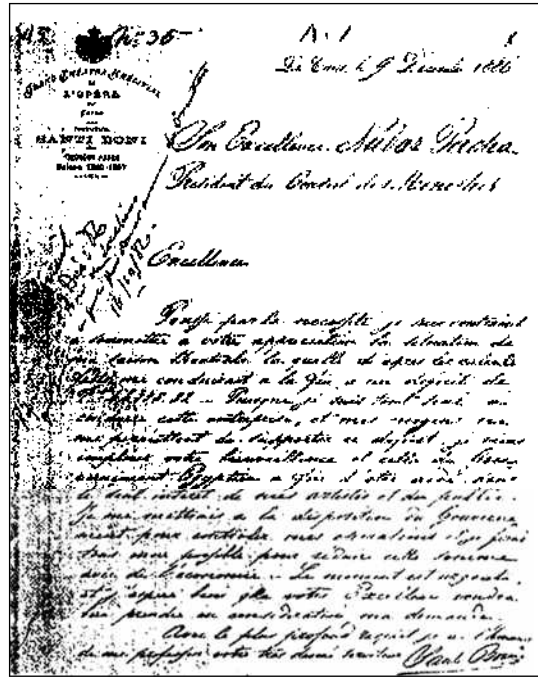 No 36
Le Caire, le 9 Décembre 1886
GRAND THÉATRE KHÉDIVIAL
DE
L'OPÉRA
DU
CAIRE
SANTI BONI
Saison 1886-1887
Son Excellence Nubar Pacha
Président du Conseil des Ministres
Excellence
Poussé par la necessité je suis contraint
a soumettre a votre appreciation la situation de
ma saison théatrale la quelle d'apres les calculs
me conduirait a la fin a un deficit de
Puisque je suis tout seul a
conduire cette entreprise, et mes moyens ne
me permettent de supporter ce deficit je viens
implorer votre bienveillance et celle du Gou-
vernement Egyptien a fin d'etre aidé dans
le seul interet de mes artistes et du public.
Je me mettrais a la disposition du Gouverne
ment pour controler mes operations et je ferai
tout mon possible pour reduire cette somme
avec de l'économie. Le moment est urgent
et j'espere bien que votre Excellence voudra
bien prendre en consideration ma demande.
Avec le plus profond respect j'ai l'honneur
de me professer votre tres devoué serviteur Santi Boni